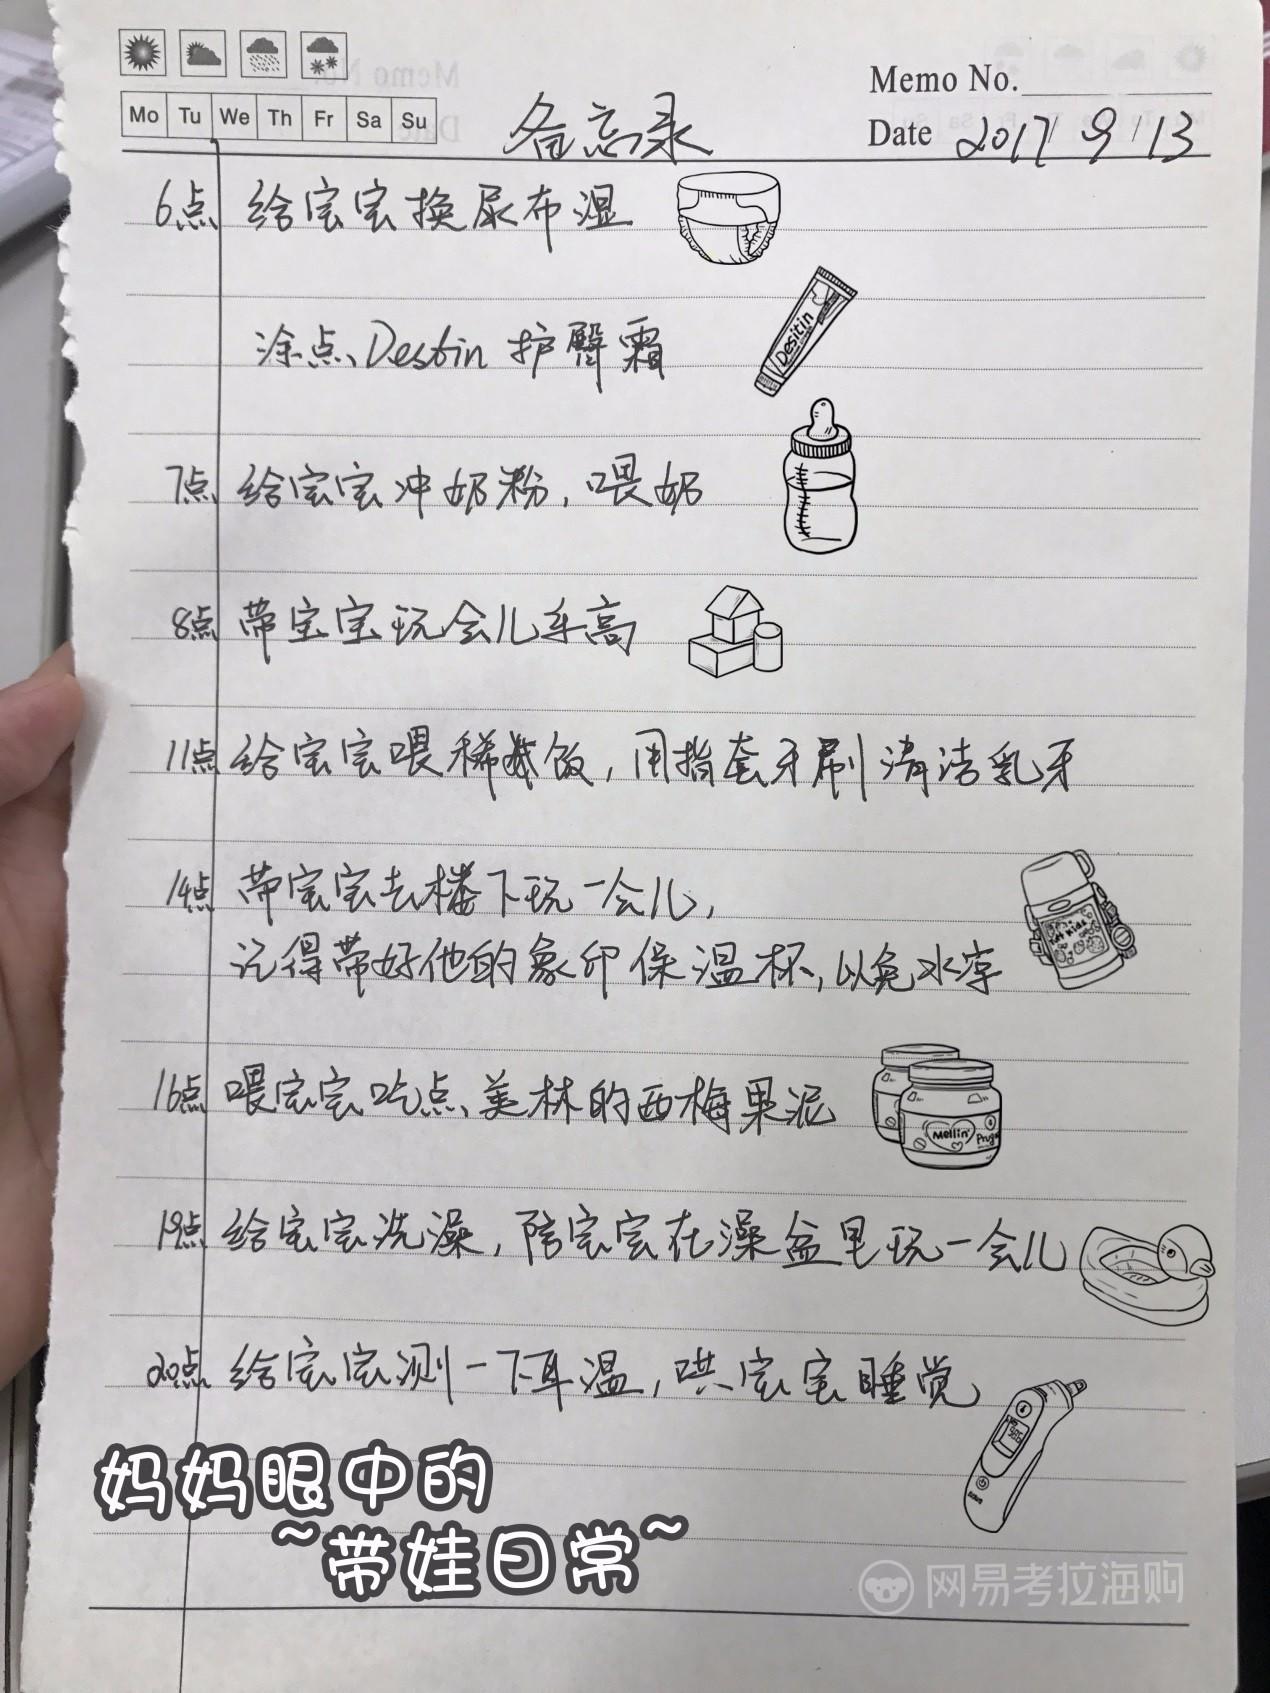 Memo No.
Mo Tu We Th Fr Sa Su
备忘录
Date 2017 9 13
6点 给宝宝换尿布湿
涂点Destin护臀霜
Desitin
7点 给宝宝冲奶粉，喂奶
8点 带宝宝玩会儿乐高
11点 给宝宝喂稀饭，用指套牙刷清洁乳牙
14点 带宝宝去楼下玩一会儿，
记得带好他的象印保温杯，以免水凉
16点 喂宝宝吃点美林的西梅果泥
Mellin
19点 给宝宝洗澡，陪宝宝在澡盆里玩一会儿
20点 给宝宝测一下耳温，哄宝宝睡觉
妈妈眼中的
~带娃日常~
网易考拉海购